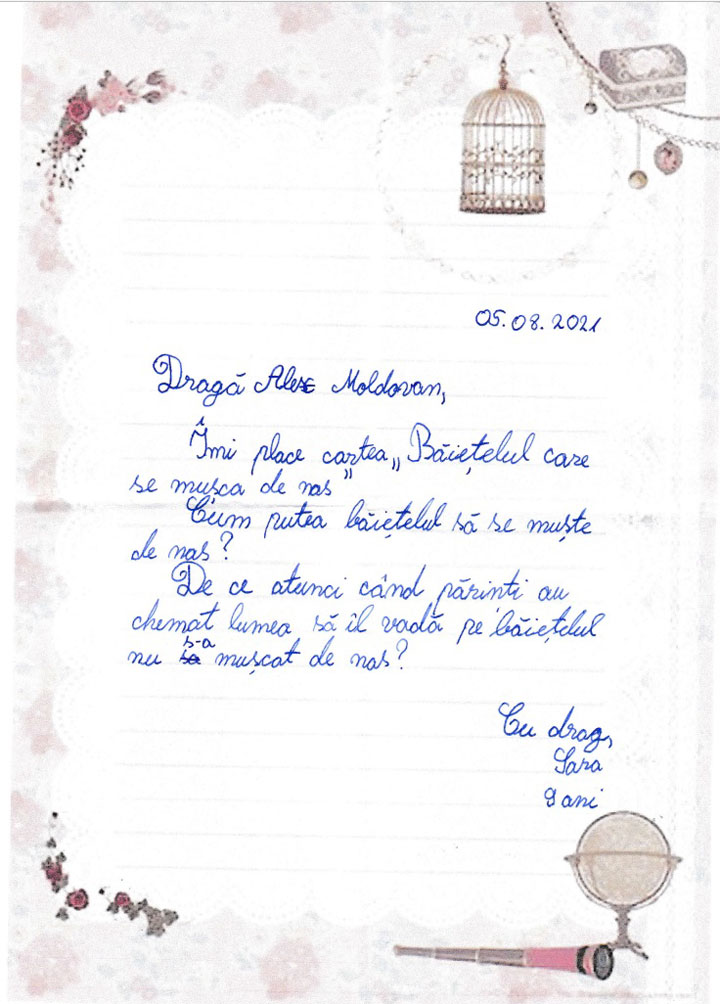 05.08.2021
Dragă Alex Moldovan,
Îmi place cartea „Băiețelul care
se mușca de nas”
Cum putea băiețelul să se muște
de nas?
De ce atunci când părinti au
chemat lumea să îl vadă pe băiețelul
s-a
nu sa mușcat de nas?
Cu drag,
Sara
9 ani